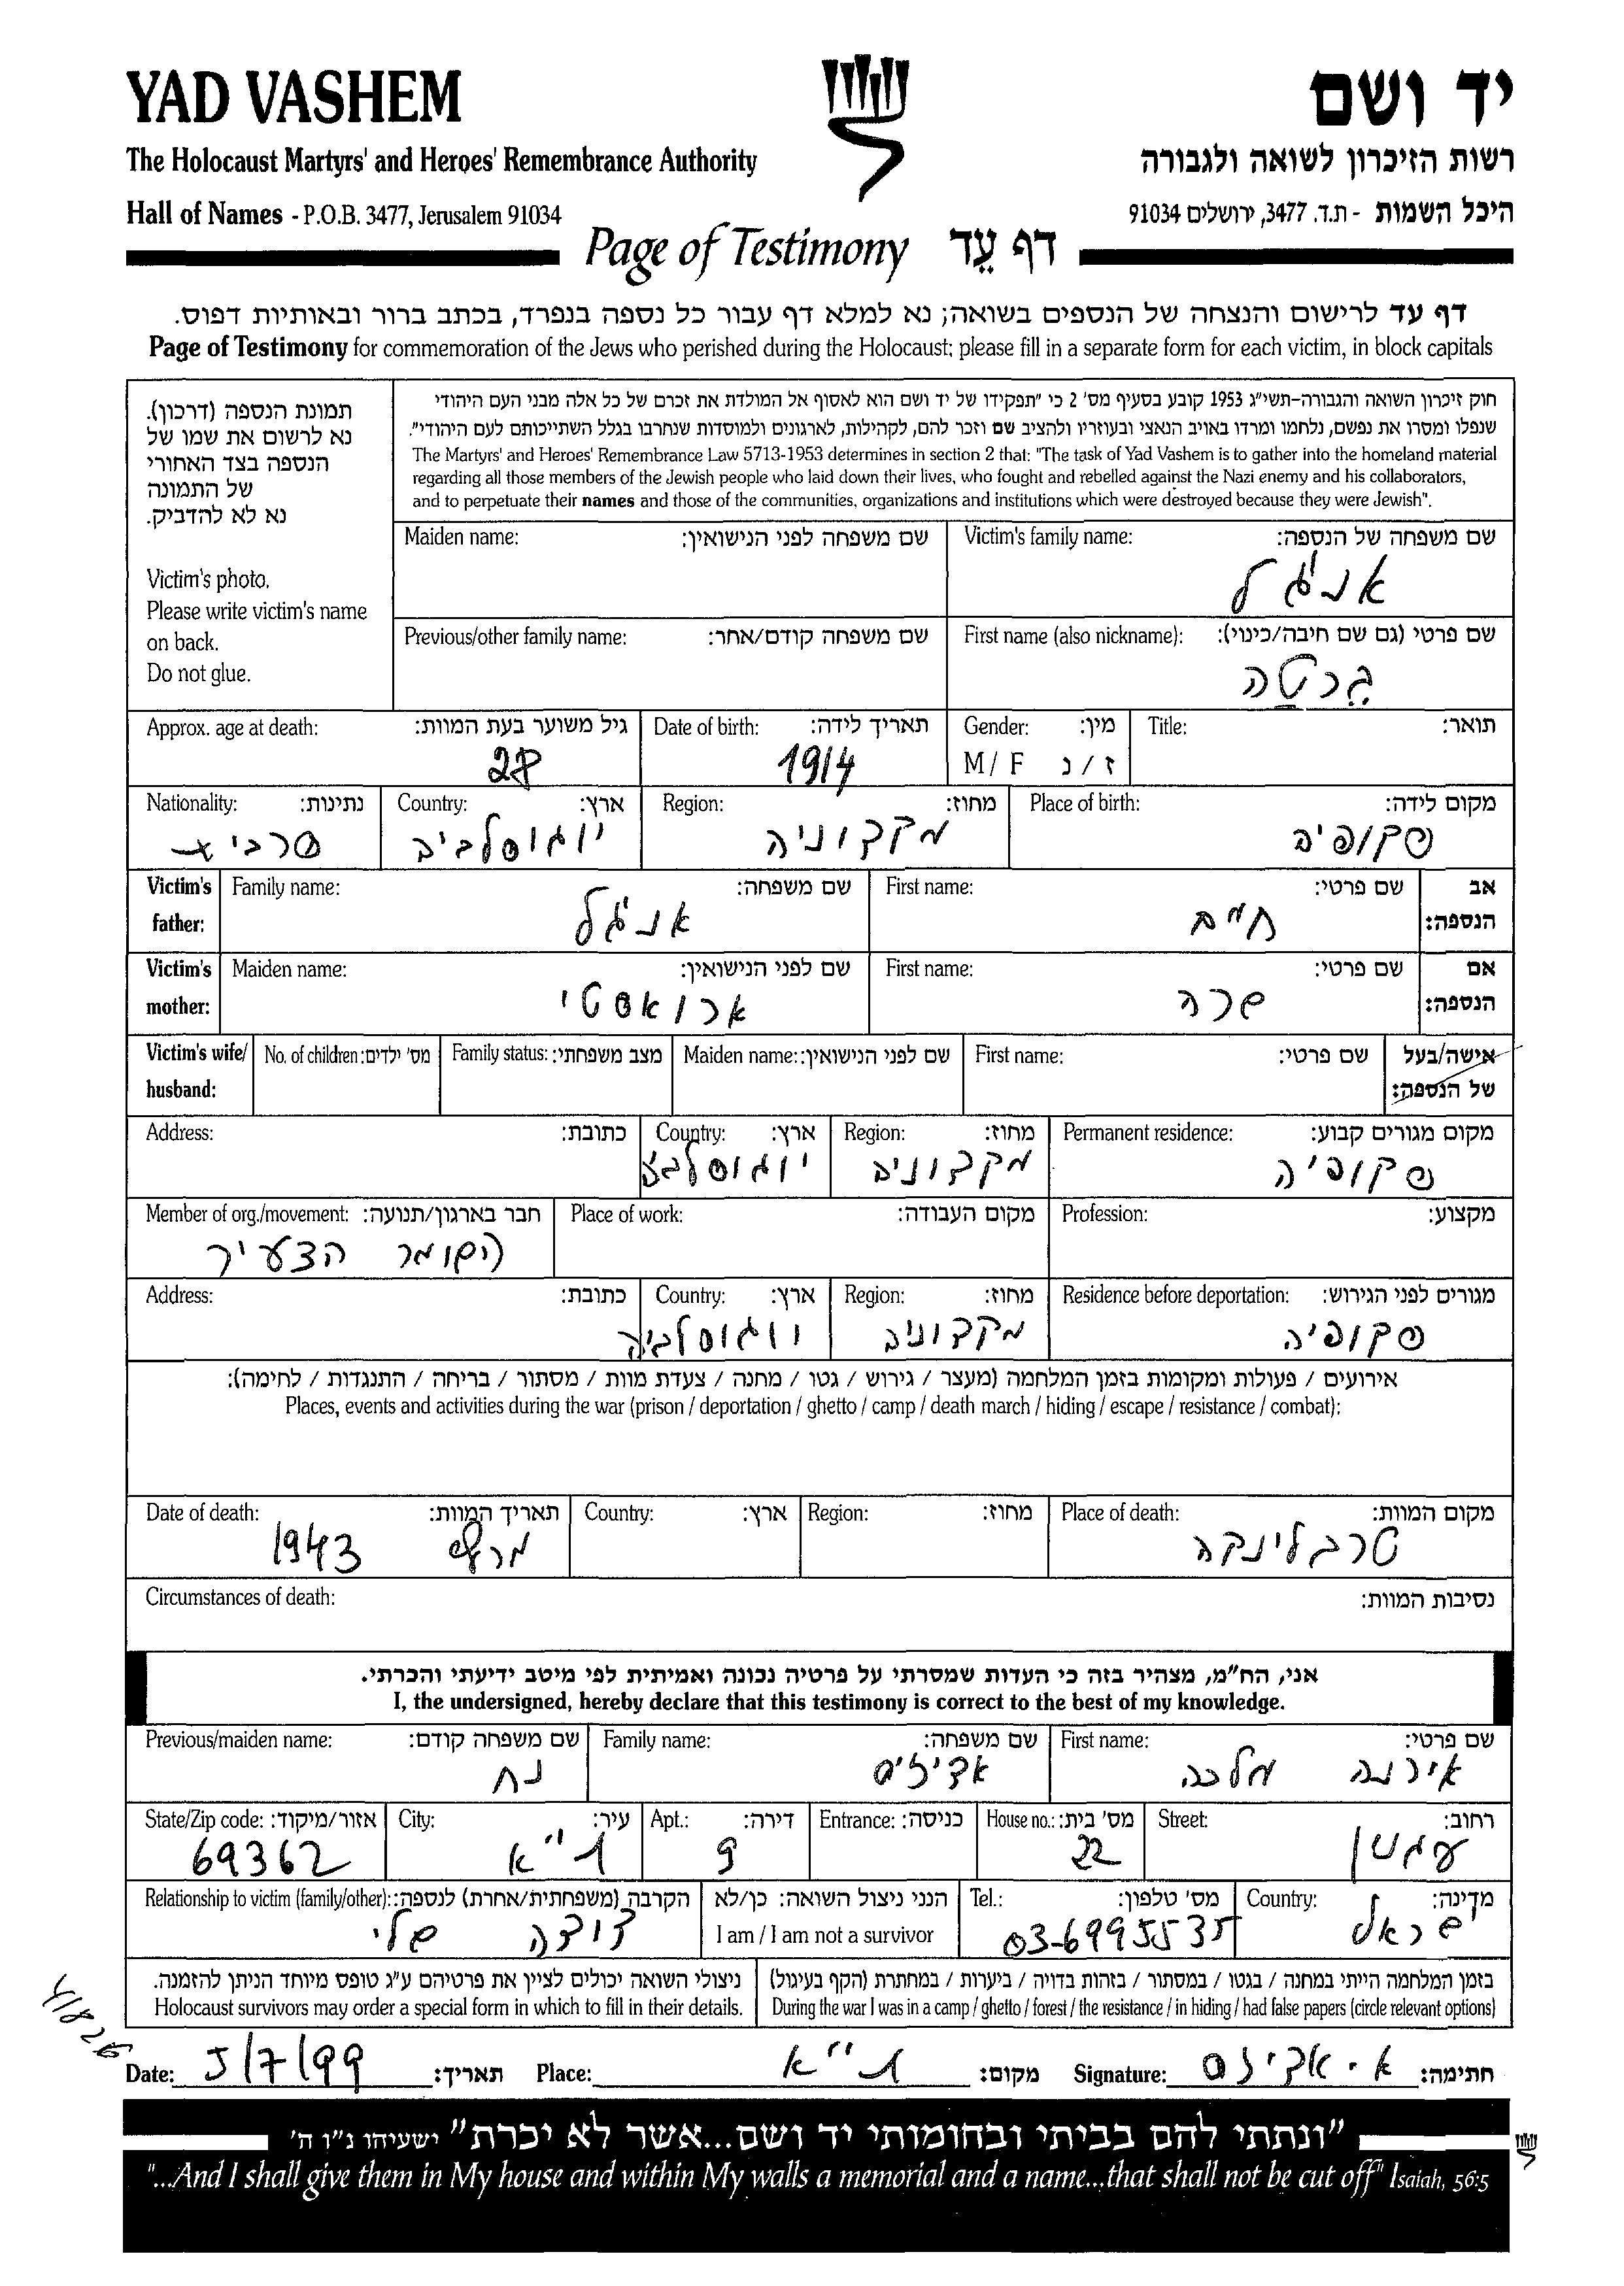 YAD VASHEM
יד ושם
The Holocaust Martyrs' and Heroes' Remembrance Authority
רשות הזיכרון לשואה ולגבורה
Hall of Names - P.O.B. 3477, Jerusalem 91034
היכל השמות - ת.ד. 3477, ירושלים 91034
Page of Testimony דף עֵד
דף עד לרישום והנצחה של הנספים בשואה; נא למלא דף עבור כל נספה בנפרד, בכתב ברור ובאותיות דפוס.
Page of Testimony for commemoration of the Jews who perished during the Holocaust; please fill in a separate form for each victim, in block capitals
תמונת הנספה (דרכון).
נא לרשום את שמו של
הנספה בצד האחורי
של התמונה
נא לא להדביק.
Victim's photo.
Please write victim's name
on back.
Do not glue.
חוק זיכרון השואה והגבורה-תשי"ג 1953 קובע בסעיף מס' 2 כי "תפקידו של יד ושם הוא לאסוף אל המולדת את זכרם של כל אלה מבני העם היהודי
שנפלו ומסרו את נפשם, נלחמו ומרדו באויב הנאצי ובעוזריו ולהציב שם וזכר להם, לקהילות, לארגונים ולמוסדות שנחרבו בגלל השתייכותם לעם היהודי".
The Martyrs' and Heroes' Remembrance Law 5713-1953 determines in section 2 that: "The task of Yad Vashem is to gather into the homeland material
regarding all those members of the Jewish people who laid down their lives, who fought and rebelled against the Nazi enemy and his collaborators,
and to perpetuate their names and those of the communities, organizations and institutions which were destroyed because they were Jewish".
Victim's family name: שם משפחה של הנספה:
אנג'ל
Maiden name: שם משפחה לפני הנישואין:
First name (also nickname): שם פרטי (גם שם חיבה/כינוי):
ברטה
Previous/other family name: שם משפחה קודם/אחר:
Title: תואר:
Gender: מין:
M / F ז / נ
Date of birth: תאריך לידה:
1914
Approx. age at death: גיל משוער בעת המוות:
28
Place of birth: מקום לידה:
סקופיה
Region: מחוז:
מקדוניה
Country: ארץ:
יוגוסלביה
Nationality: נתינות:
סרבית
Victim's father: אב הנספה:
First name: שם פרטי:
חיים
Family name: שם משפחה:
אנג'ל
Victim's mother: אם הנספה:
First name: שם פרטי:
שרה
Maiden name: שם לפני הנישואין:
ארואסטי
Victim's wife/ husband: אישה/בעל של הנספה:
First name: שם פרטי:
Maiden name: שם לפני הנישואין:
Family status: מצב משפחתי:
No. of children: מס' ילדים:
Permanent residence: מקום מגורים קבוע:
סקופיה
Region: מחוז:
מקדוניה
Country: ארץ:
יוגוסלביה
Address: כתובת:
Profession: מקצוע:
Place of work: מקום העבודה:
Member of org./movement: חבר בארגון/תנועה:
השומר הצעיר
Residence before deportation: מגורים לפני הגירוש:
סקופיה
Region: מחוז:
מקדוניה
Country: ארץ:
יוגוסלביה
Address: כתובת:
אירועים / פעולות ומקומות בזמן המלחמה (מעצר / גירוש / גטו / מחנה / צעדת מוות / מסתור / בריחה / התנגדות / לחימה):
Places, events and activities during the war (prison / deportation / ghetto / camp / death march / hiding / escape / resistance / combat):
Place of death: מקום המוות:
טרבלינקה
Region: מחוז:
Country: ארץ:
Date of death: תאריך המוות:
מרץ 1943
Circumstances of death: נסיבות המוות:
אני, הח"מ, מצהיר בזה כי העדות שמסרתי על פרטיה נכונה ואמיתית לפי מיטב ידיעתי והכרתי.
I, the undersigned, hereby declare that this testimony is correct to the best of my knowledge.
First name: שם פרטי:
אירנה מלכה
Family name: שם משפחה:
אדיז'ס
Previous/maiden name: שם משפחה קודם:
נח
Street: רחוב:
עגנון
House no.: מס' בית:
22
Entrance: כניסה:
Apt.: דירה:
9
City: עיר:
ת"א
State/Zip code: אזור/מיקוד:
69362
Country: מדינה:
ישראל
Tel.: מס' טלפון:
03-6995535
הנני ניצול השואה: כן/לא
I am / I am not a survivor
Relationship to victim (family/other): הקרבה (משפחתית/אחרת) לנספה:
דודה שלי
בזמן המלחמה הייתי במחנה / בגטו / במסתור / בזהות בדויה / ביערות / במחתרת (הקף בעיגול)
During the war I was in a camp / ghetto / forest / the resistance / in hiding / had false papers (circle relevant options)
ניצולי השואה יכולים לציין את פרטיהם ע"ג טופס מיוחד הניתן להזמנה.
Holocaust survivors may order a special form in which to fill in their details.
Date: 5/7/99 תאריך: Place: ת"א מקום: Signature: א. אדיז'ס חתימה:
"ונתתי להם בביתי ובחומותי יד ושם...אשר לא יכרת" ישעיהו נ"ו ה'
"...And I shall give them in My house and within My walls a memorial and a name...that shall not be cut off" Isaiah, 56:5